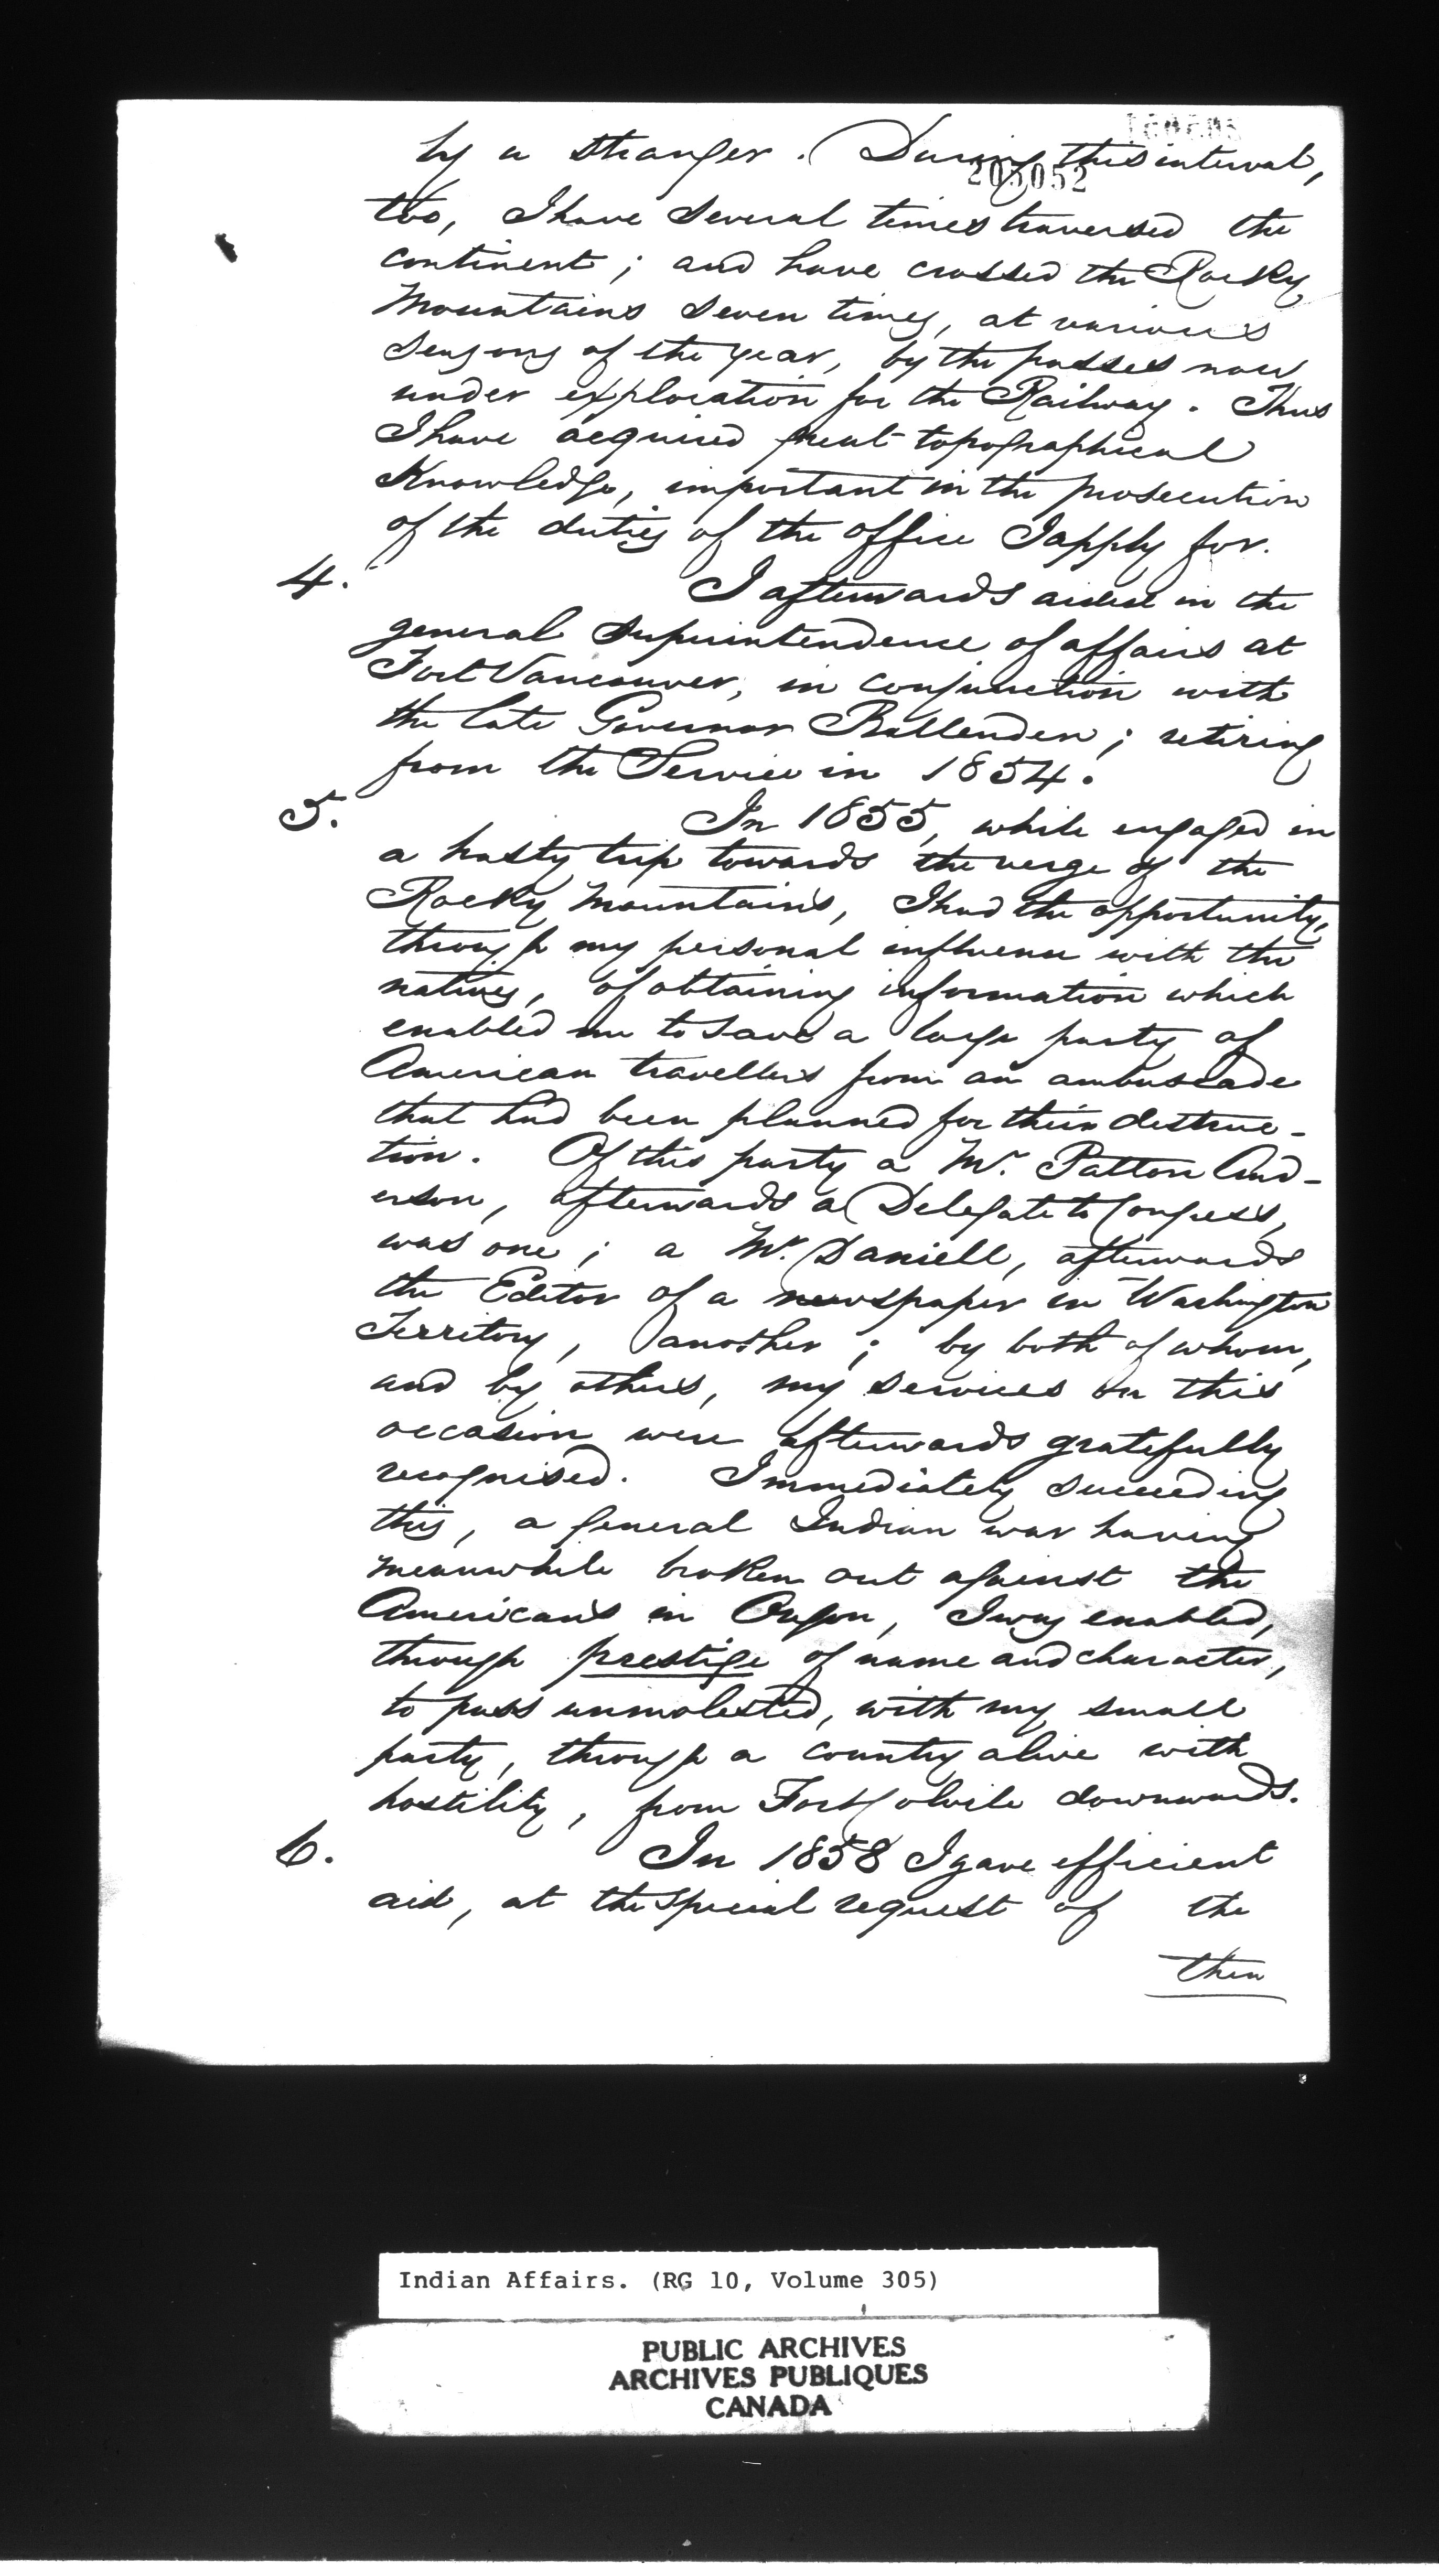 by a stranger. During this interval,
203052
too, I have several times traversed the
continent; and have crossed the Rocky
Mountains seven times, at various
seasons of the year, by the passes now
under exploration for the Railway. Thus
I have acquired great topographical
Knowledge, important in the prosecution
of the duties of the office I apply for.
4. I afterwards aided in the
general superintendence of affairs at
Fort Vancouver, in conjunction with
the late Governor Ballenden; retiring
from the Service in 1854.
5. In 1855, while engaged in
a hasty trip towards the verge of the
Rocky Mountains, I had the opportunity,
through my personal influence with the
natives, of obtaining information which
enabled me to save a large party of
American travellers from an ambuscade
that had been planned for their destruc-
tion. Of this party a Mr. Patton And-
erson, afterwards a Delegate to Congress,
was one; a Mr. Daniell, afterwards
the Editor of a newspaper in Washington
Territory, another; by both of whom,
and by others, my services on this
occasion were afterwards gratefully
recognised. Immediately succeeding
this, a general Indian war having
meanwhile broken out against the
Americans in Oregon, I was enabled,
through prestige of name and character,
to pass unmolested, with my small
party, through a country alive with
hostility, from Fort Colvile downwards.
6. In 1858 I gave efficient
aid, at the special request of the
then
Indian Affairs. (RG 10, Volume 305)
PUBLIC ARCHIVES
ARCHIVES PUBLIQUES
CANADA